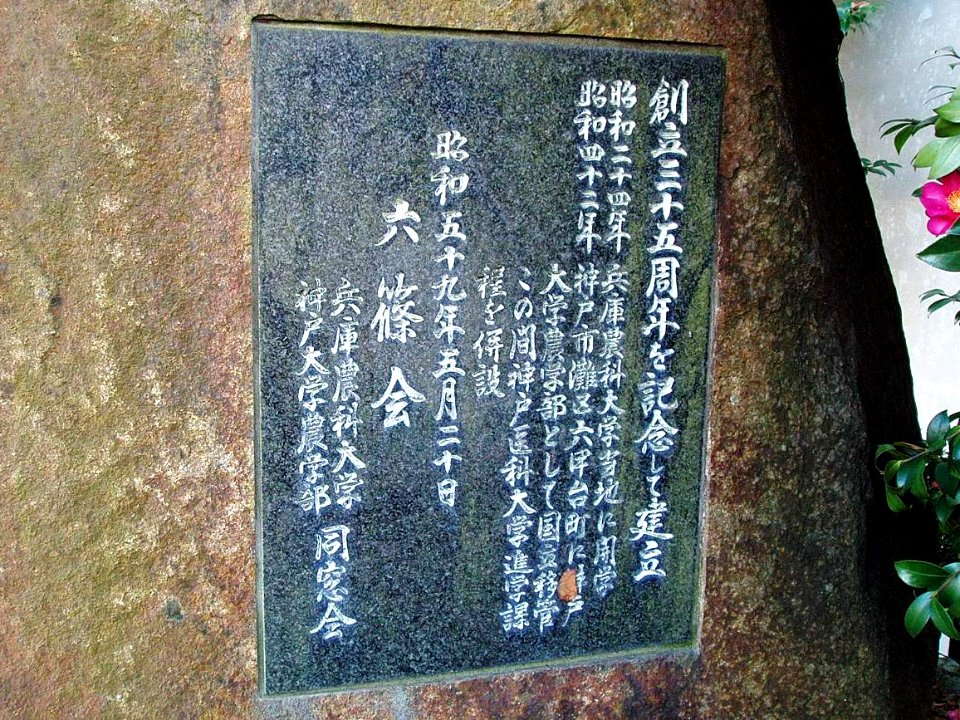 創立三十五周年を記念して建立
昭和二十四年 兵庫農科大学当地に開学
昭和四十二年 神戸市灘区六甲台町に神戸
大学農学部として国立移管
この間神戸医科大学進学課
程を併設
昭和五十九年五月二十日
六篠会
兵庫農科大学
神戸大学農学部 同窓会